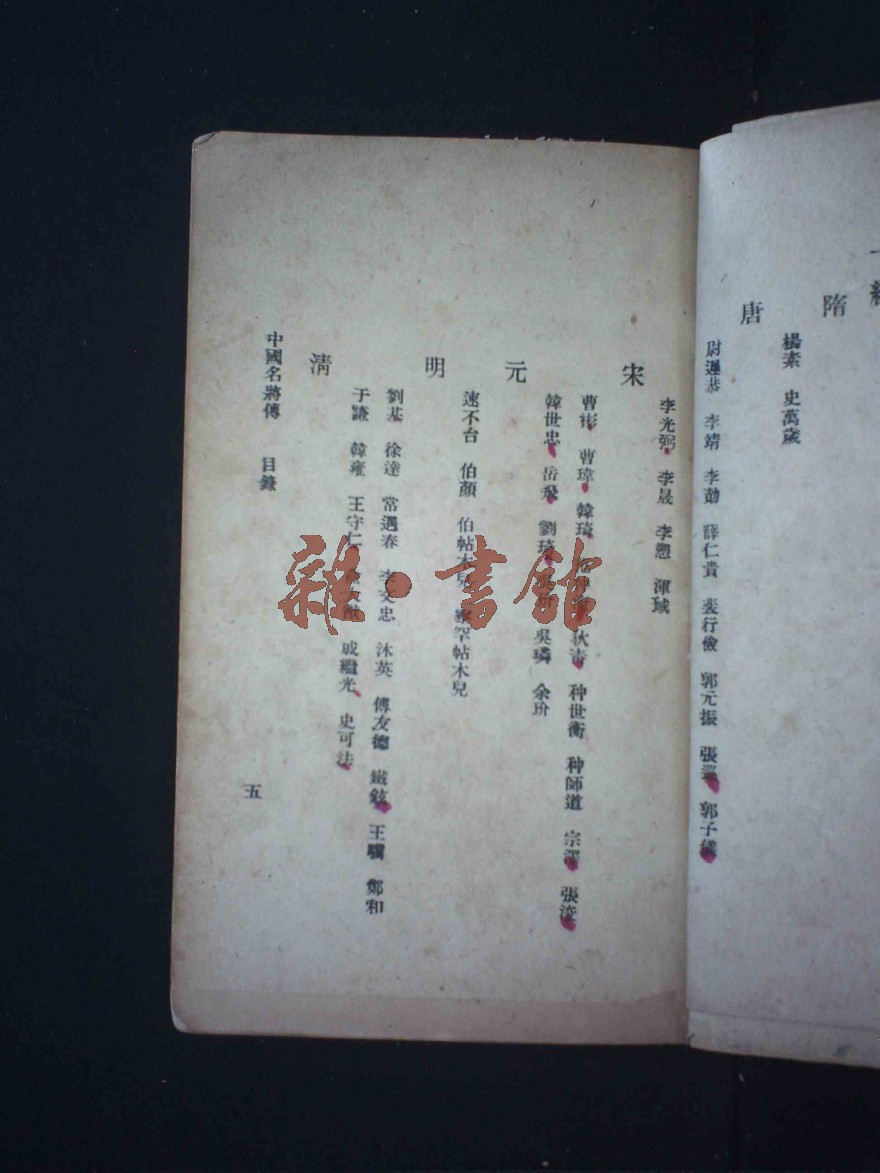 隋
楊素 史萬歲
唐
尉遲恭 李靖 李勣 薛仁貴 裴行儉 郭元振 張巡 郭子儀
李光弼 李晟 李愬 渾瑊
宋
曹彬 曹瑋 韓琦 狄青 种世衡 种師道 宗澤 張浚
韓世忠 岳飛 劉琦 吳璘 余玠
元
速不台 伯顏 伯帖木兒 察罕帖木兒
明
劉基 徐達 常遇春 李文忠 沐英 傅友德 鐵鉉 王驥 鄭和
于謙 韓雍 王守仁 戚繼光 史可法
清
中國名將傳 目錄
五
雜·書館